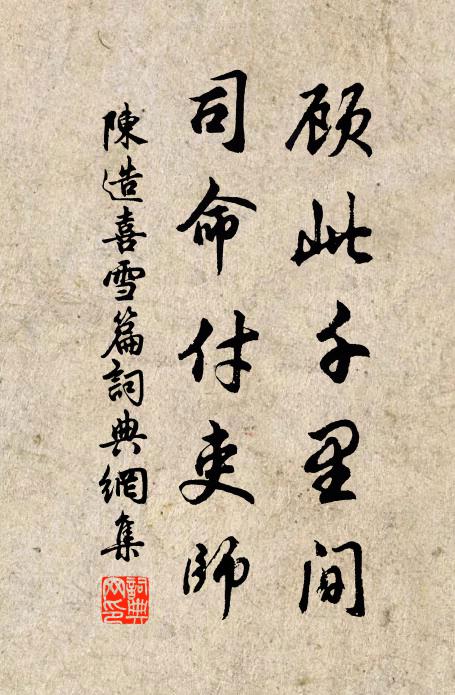 顾此千里间
司命付吏師
陳造喜雪篇詞典網集
詞典網印